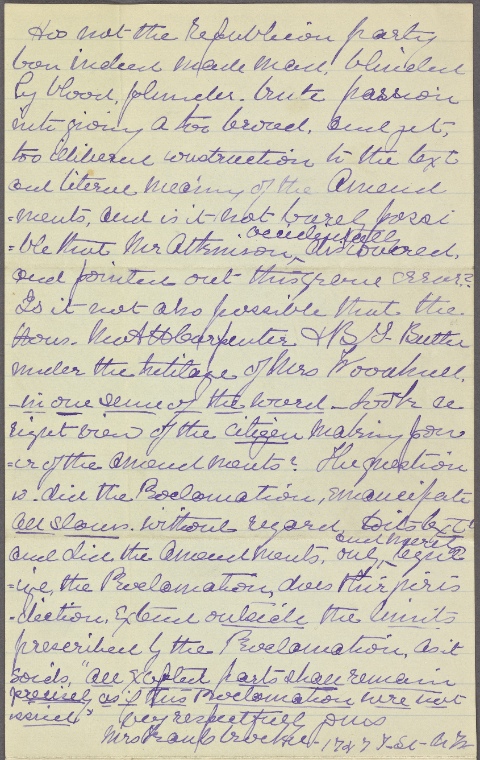 Has not the Republican party
been indeed made mad, blinded
by blood, plunder. brute passion
into giving a too broad, and yet,
too illiberal construction to the text
and literal meaning of the Amend
=ments, and is it not barel possi
=ble that Mr Atkinson, accidentally discovered,
and pointed out this grave error?
Is it not also possible that the
Hons. Mat H Carpenter & B. F. Butler
under the tutilage of Mrs Woodhull.
- in one sense of the word - took a
right view of the citizen making pow
=er of the amendments? The question
is. did the Proclamation, emancipate
all slaves. without regard, to its text
and did the Amendments, only, legal
=ize, the Proclamation, does their juris
=diction, extend outside the limits
prescribed by the Proclamation, as it
said, "all excepted parts shall remain
precisely as if this Proclamation were not
issued" very respectfully yours
Mrs Crocker - 1727 F. St - N W